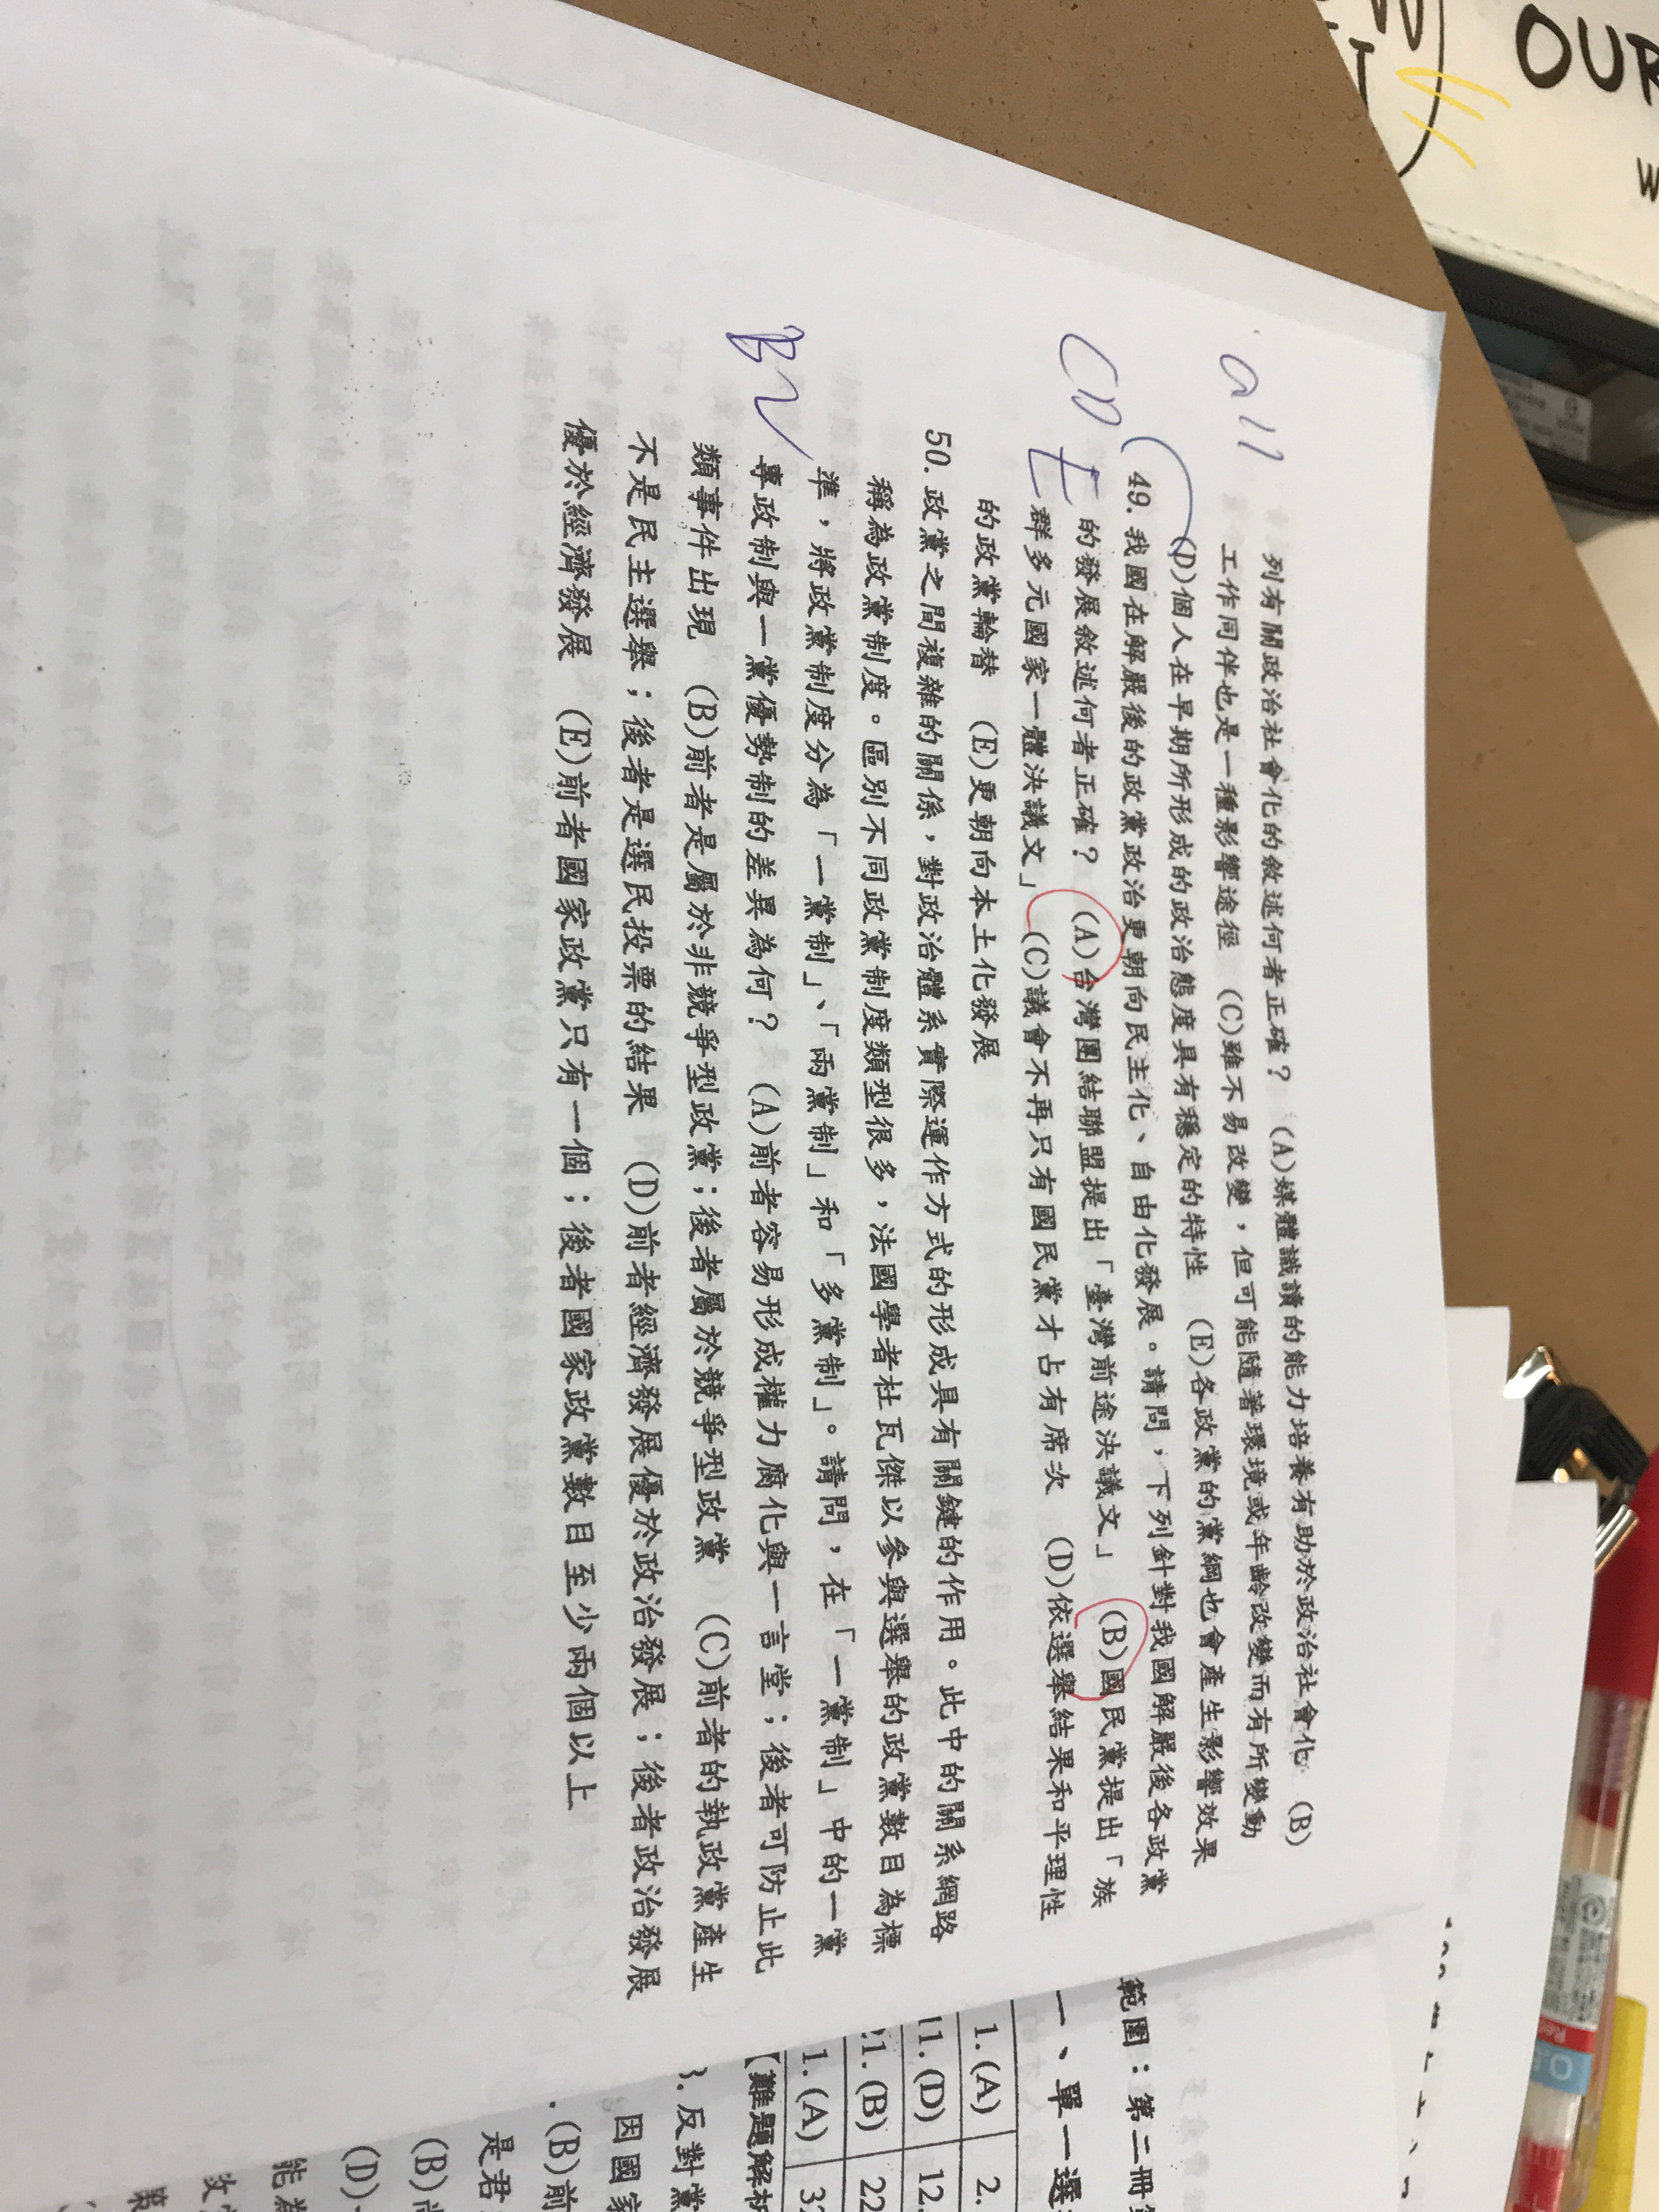 OUR
列有關政治社會化的敘述何者正確？ (A)媒體識讀的能力培養有助於政治社會化 (B)
工作同伴也是一種影響途徑 (C)雖不易改變，但可能隨著環境或年齡改變而有所變動
(D)個人在早期所形成的政治態度具有穩定的特性 (E)各政黨的黨綱也會產生影響效果
all
49.我國在解嚴後的政黨政治更朝向民主化、自由化發展。請問，下列針對我國解嚴後各政黨
的發展敘述何者正確？ (A)台灣團結聯盟提出「臺灣前途決議文」 (B)國民黨提出「族
群多元國家一體決議文」 (C)議會不再只有國民黨才占有席次 (D)依選舉結果和平理性
的政黨輪替 (E)更朝向本土化發展
CD
E
50.政黨之間複雜的關係，對政治體系實際運作方式的形成具有關鍵的作用。此中的關係網路
稱為政黨制度。區別不同政黨制度類型很多，法國學者杜瓦傑以參與選舉的政黨數目為標
準，將政黨制度分為「一黨制」、「兩黨制」和「多黨制」。請問，在「一黨制」中的一黨
專政制與一黨優勢制的差異為何？ (A)前者容易形成權力腐化與一言堂；後者可防止此
類事件出現 (B)前者是屬於非競爭型政黨；後者屬於競爭型政黨 (C)前者的執政黨產生
不是民主選舉；後者是選民投票的結果 (D)前者經濟發展優於政治發展；後者政治發展
優於經濟發展 (E)前者國家政黨只有一個；後者國家政黨數目至少兩個以上
B
範圍：第二冊
一、單一選
1.(A) 2.
11.(D) 12.
21.(B) 22
1.(A) 32
【難題解析
3.反對黨
因國家
.(B)前
是君
(B)尚
(D)
能為